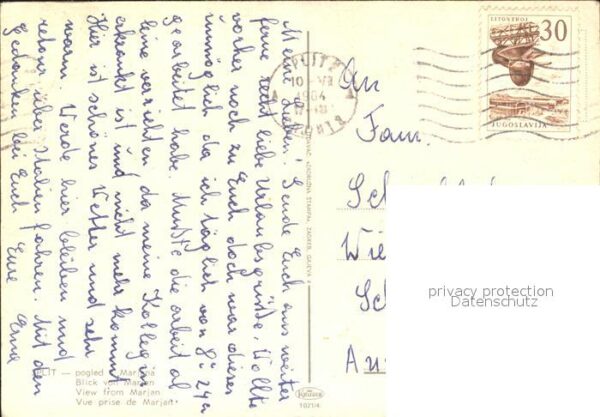 Meine Lieben! Sende Euch aus weiter
ferne recht liebe Urlaubsgrüße. Wollte
vorher noch zu Euch doch war dieses
unmöglich da ich täglich von 8-24 h
gearbeitet habe. Mußte die arbeit al-
leine verrichten da meine Kollegin
erkrankt ist und nicht mehr kommt
Hier ist schönes Wetter und sehr
warm. Werde hier bleiben und
retour über Italien fahren. Mit den
Gedanken bei Euch Eure Erna
LITOSTROJ
30
JUGOSLAVIJA
SPLIT
1964
An
Fam.
Sch
Wie
Sc
Au
privacy protection
Datenschutz
SPLIT — pogled s Marjana
Blick von Marjan
View from Marjan
Vue prise de Marjan
1021/4